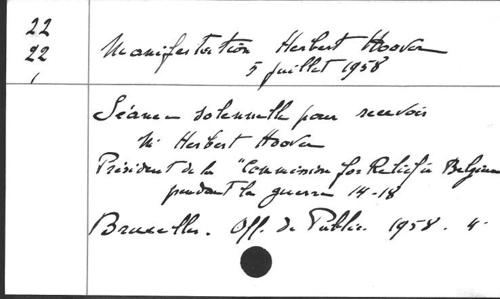 22
22
Manifestation Herbert Hoover
5 juillet 1958
Séance solennelle pour recevoir
M. Herbert Hoover
Président de la "Commission for Relief in Belgium
pendant la guerre 14-18
Bruxelles. Off. de Public. 1958. 4°